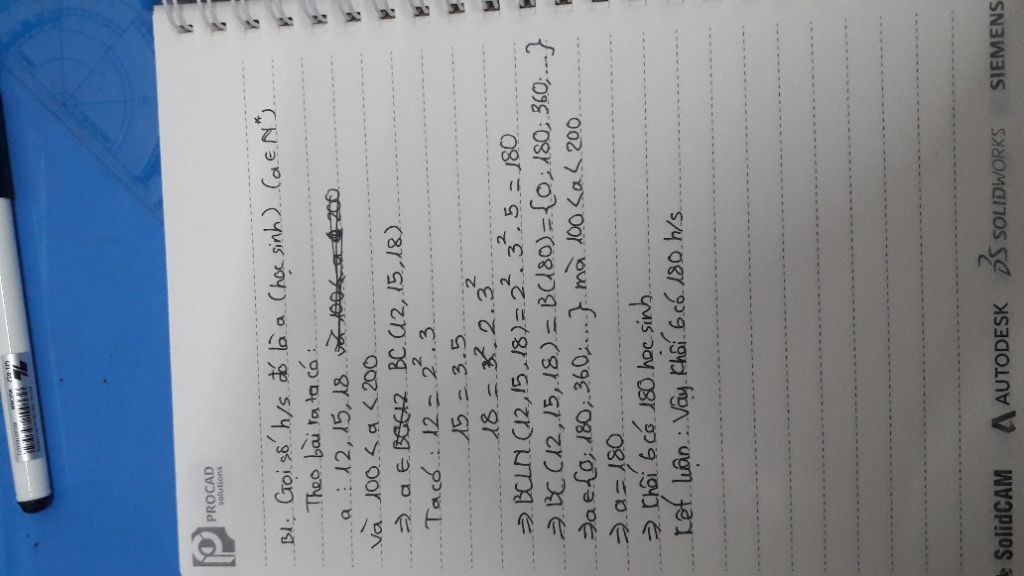 PROCAD
solutions
B1: Gọi số h/s đó là a (học sinh) (a ∈ N*)
Theo bài ra ta có:
a : 12, 15, 18 và 100 < a < 200
Và 100 < a < 200
⇒ a ∈ BC(12 BC (12, 15, 18)
Ta có: 12 = 2². 3
15 = 3. 5
18 = 2. 3²
⇒ BCLN (12, 15, 18) = 2². 3². 5 = 180
⇒ BC (12, 15, 18) = B(180) = {0; 180; 360; ...}
⇒ a ∈ {0; 180, 360, ...} mà 100 < a < 200
⇒ a = 180
⇒ Khối 6 có 180 học sinh
Kết luận: Vậy khối 6 có 180 h/s
SolidCAM AUTODESK SOLIDWORKS SIEMENS